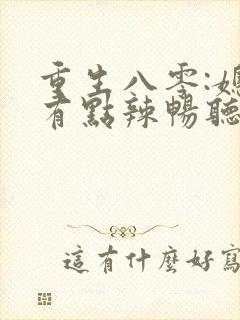 重生八零:媳
有點辣暢聽
這有什麼好寫